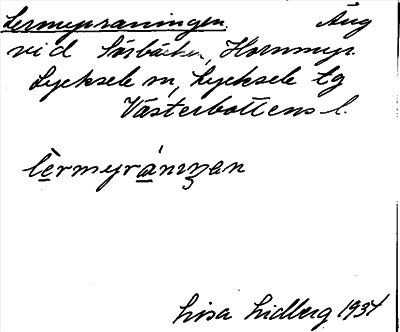 Lermyraningen. Äng
vid Sörbäcken, Hornmyr.
Lycksele sn, Lycksele tg
Västerbottens l.
lèrmyrániŋen
Lisa Lidberg 1934